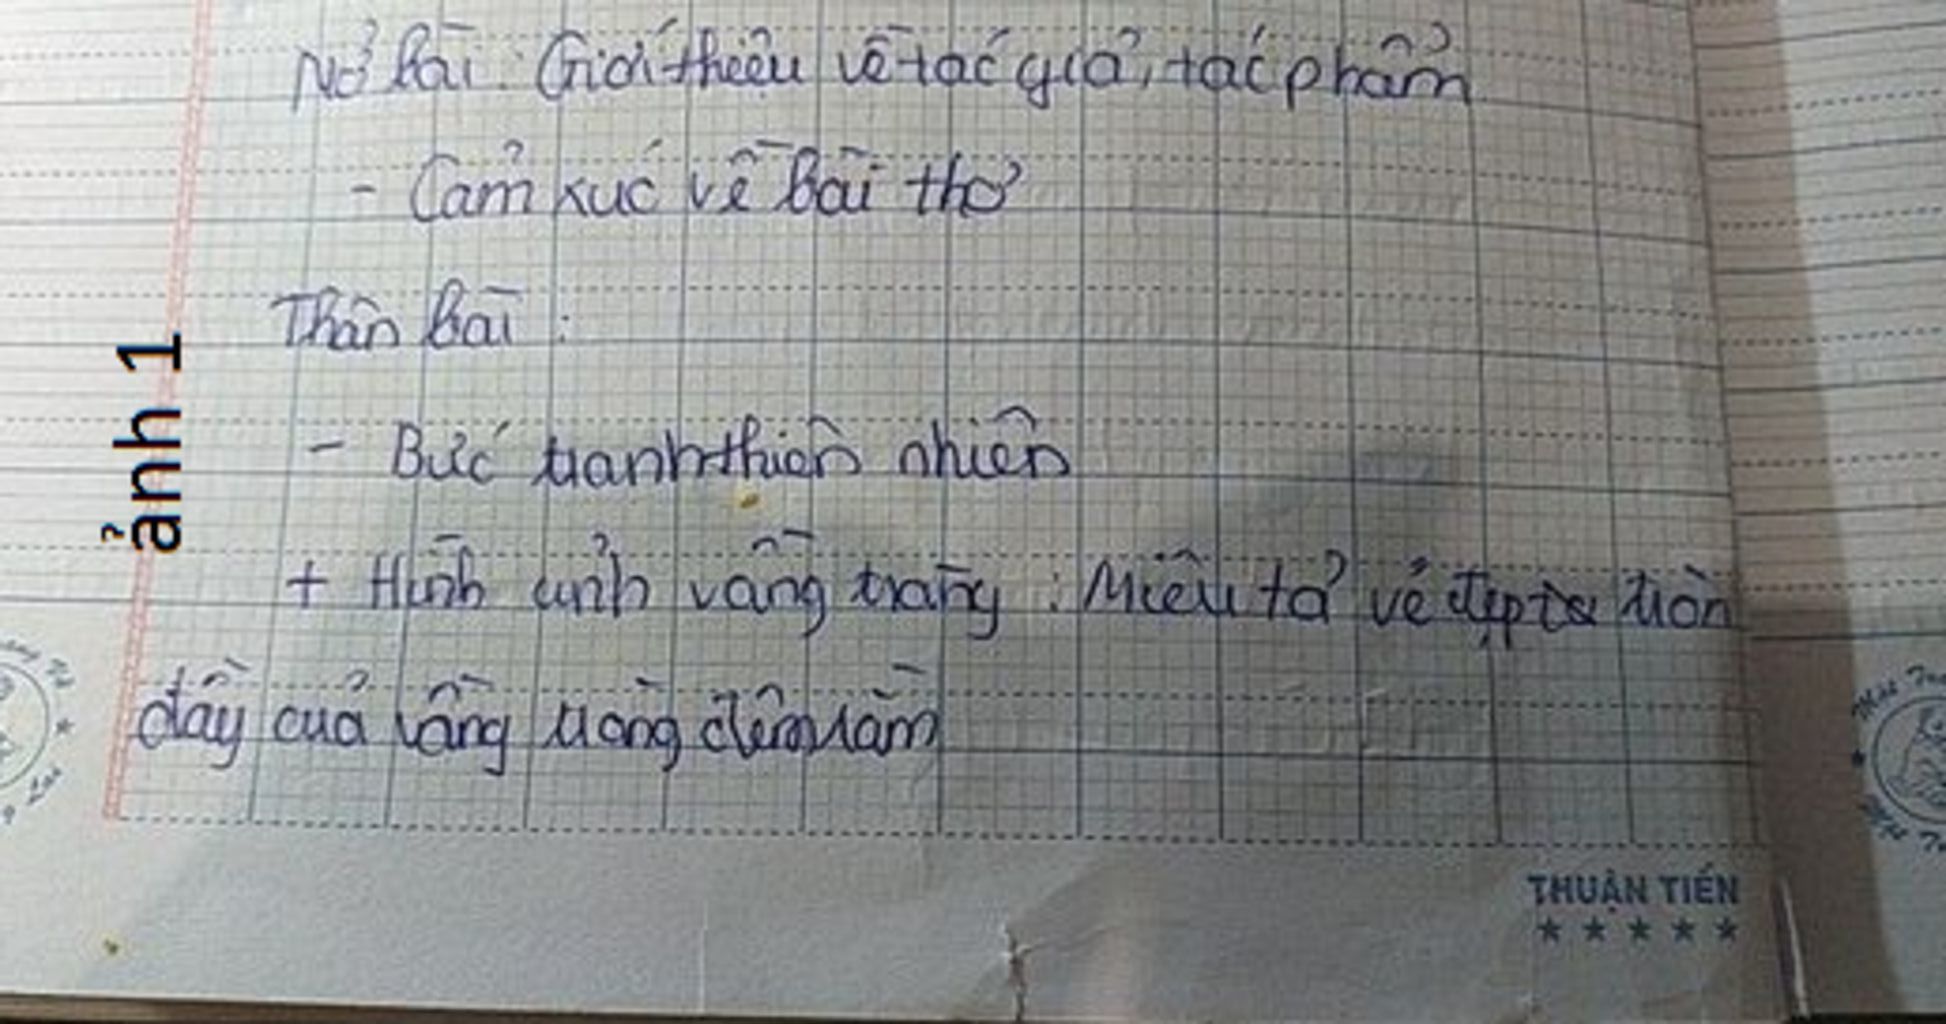 Mở bài: Giới thiệu về tác giả, tác phẩm
- Cảm xúc về bài thơ
Thân bài:
- Bức tranh thiên nhiên
+ Hình ảnh vầng trăng: Miêu tả vẻ đẹp tròn
đầy của vầng trăng đêm rằm
ảnh 1
THUẬN TIẾN